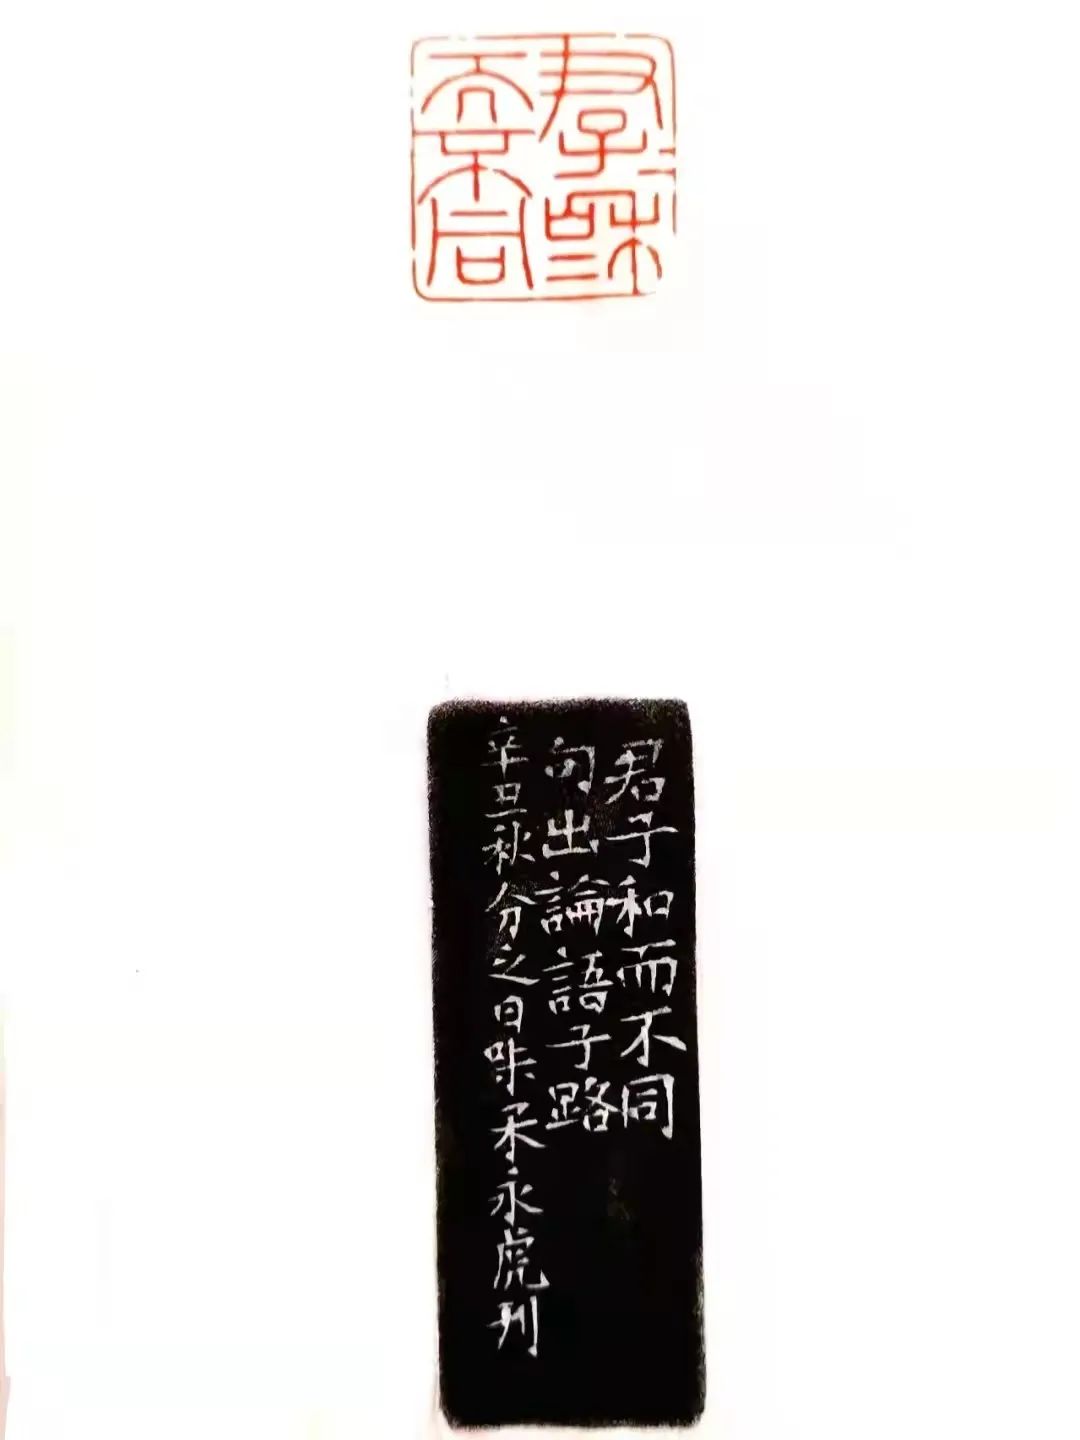 君子和
而不同
君子和而不同
句出論語子路
辛丑秋分之日柔永虎刊